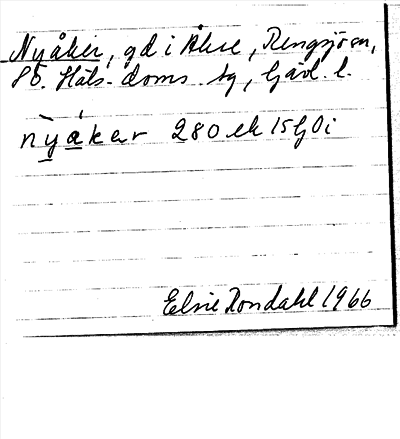 Nyåker, gd i Åkre, Rengsjö sn,
Häls. doms. tg, Gävl. l.
nyåker 280 ek 15 Gj0i
Elsie Rondahl 1966